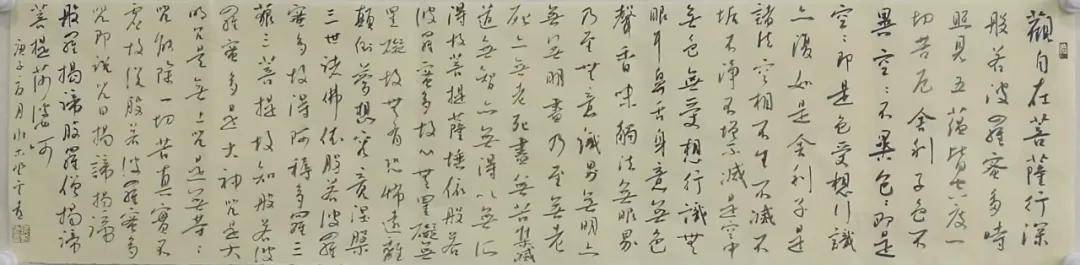 觀自在菩薩行深
般若波羅蜜多時
照見五蘊皆空度一
切苦厄舍利子色不
異空〻不異色〻即是
空〻即是色受想行識
亦復如是舍利子是
諸法空相不生不滅不
垢不淨不增不減是空中
無色無受想行識無
眼耳鼻舌身意無色
聲香味觸法無眼界
乃至無意識界無無明亦
無無明盡乃至無老
死亦無老死盡無苦集滅
道無智亦無得以無所
得故菩提薩埵依般若
波羅蜜多故心無罣礙無
罣礙故無有恐怖遠離
顛倒夢想究竟涅槃
三世諸佛依般若波羅
蜜多故得阿耨多羅三
藐三菩提故知般若波
羅蜜多是大神咒是大
明咒是無上咒是無等〻
咒能除一切苦真實不
虛故說般若波羅蜜多
咒即說咒曰揭諦揭諦
般羅揭諦般羅僧揭諦
菩提莎婆訶
庚子